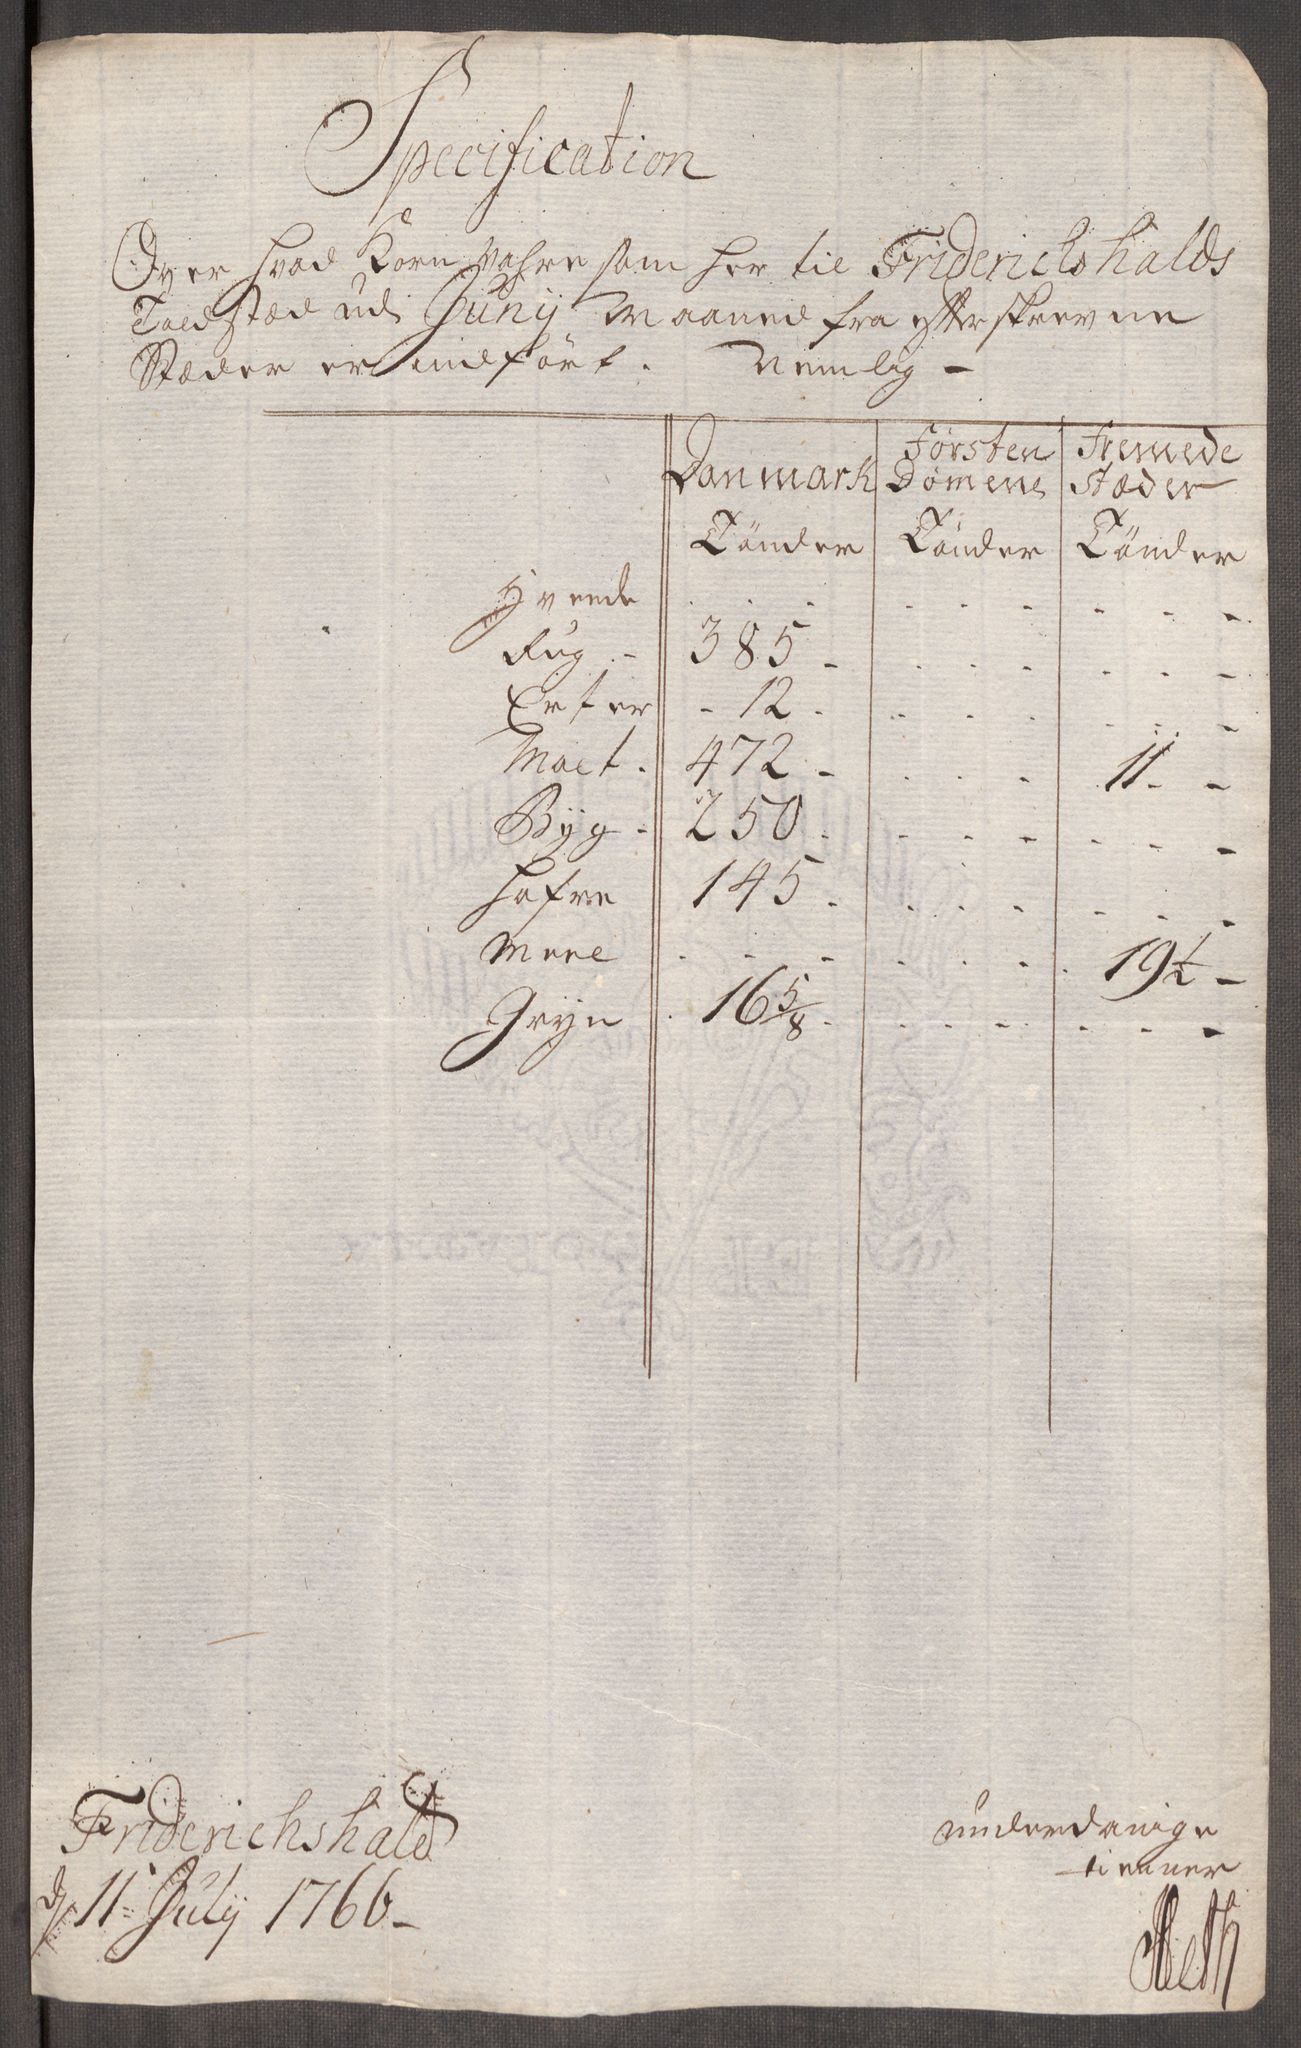 Specification
Over hvad Korn Vahre som her til Friderichshalds
Toldstæd udi Junij Maaned fra efterskrevne
Stæder er indført. Nemlig -
Danmark Førsten Dømene Fremede stæder
Tönder Tönder Tönder
Hveede . . . . . . - - -
Rug - 385 - . . - . - -
Erter - 12 - . . . . . -
Malt . 472 - . . - 11 - -
Byg - 250 . - - - - - -
Hafre 145 . . . - - . -
Meel . . - . . . . 19 1/2 -
Gryn . 16 5/8 . . . - - . - -
Friderichshald
d/ 11= July 1766 -
underdanige
tienner